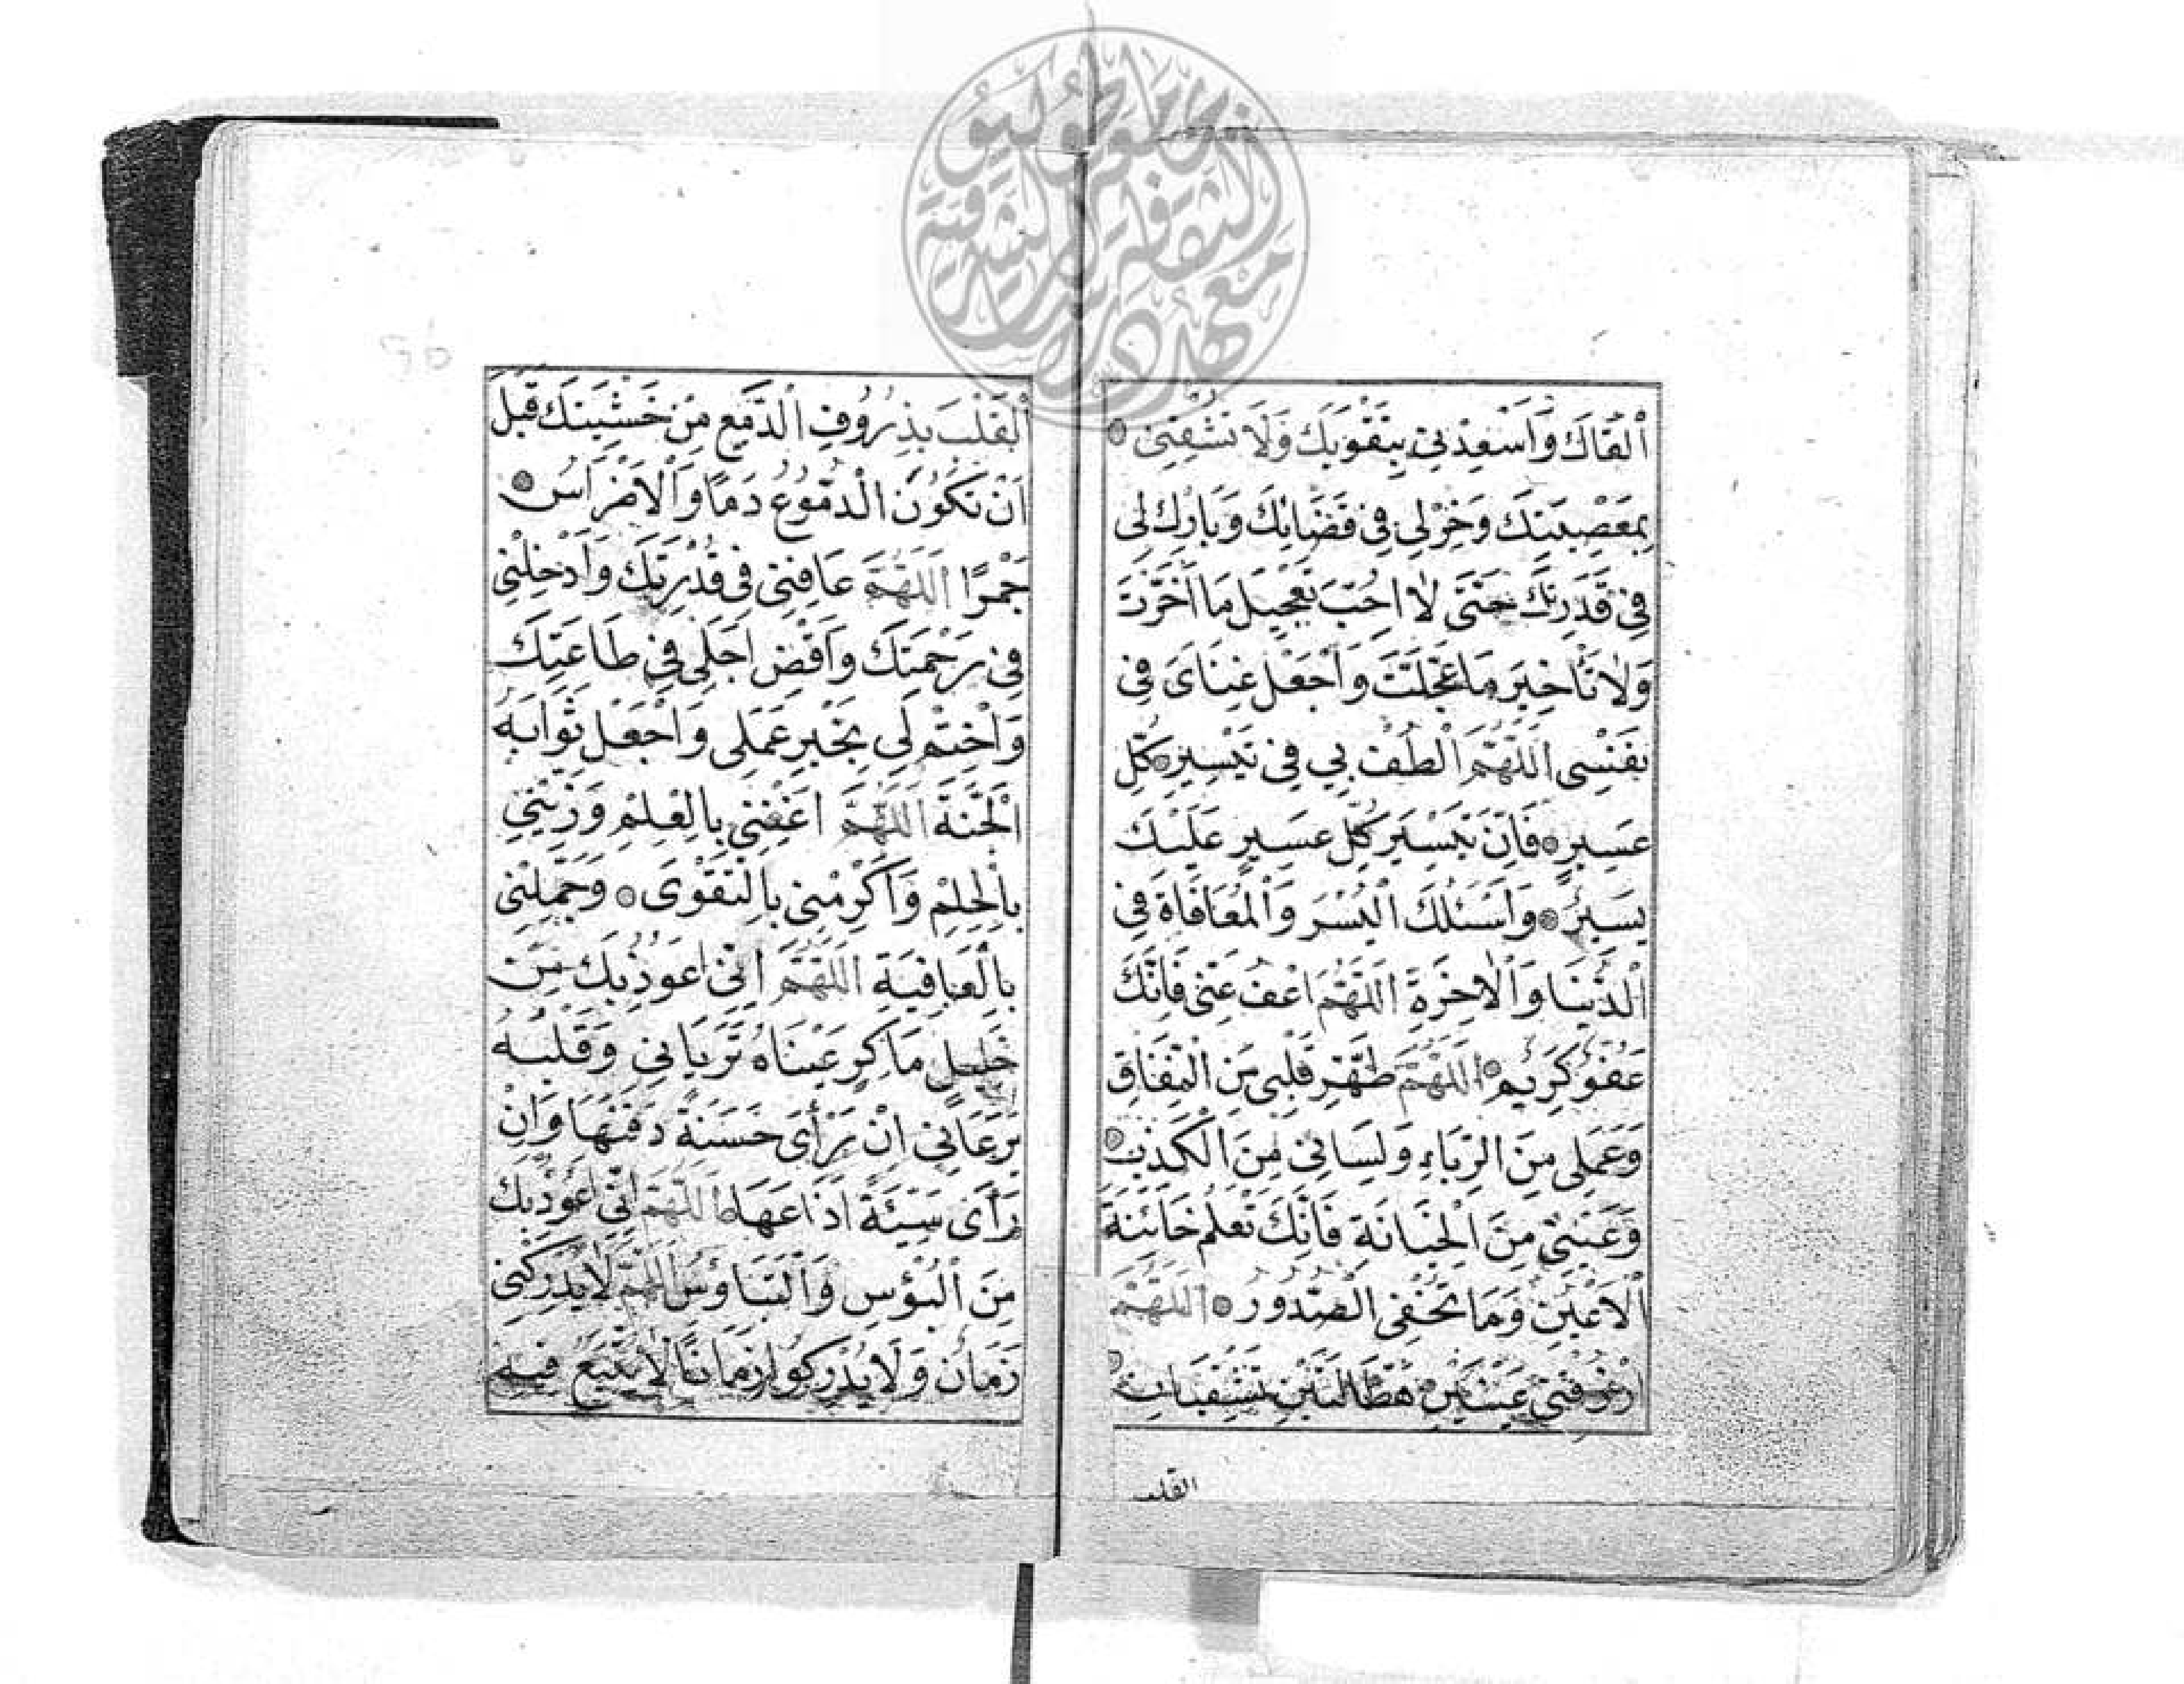 اَلْقَاكَ وَاَسْعِدْنِى بِتَقْوٰيكَ وَلَا تُشْقِنِى
بِمَعْصِيَتِكَ وَخِرْلِى فِى قَضَائِكَ وَبَارِكْ لِى
فِى قَدَرِتِكَ حَتّٰى لَا اُحِبَّ تَعْجِيلَ مَا اَخَّرْتَ
وَلَا تَأْخِيرَ مَا عَجَّلْتَ وَاَجْعَلْ غِنَاىَ فِى
نَفْسِى اَللّٰهُمَّ اَلْطُفْ بِى فِى تَيْسِيرِ كُلِّ
عَسِيرٍ فَاِنَّ تَيْسِيرَ كُلِّ عَسِيرٍ عَلَيْكَ
يَسِيرٌ وَاَسْئَلُكَ الْيُسْرَ وَالْمُعَافَاةَ فِى
الدُّنْيَا وَالْاٰخِرَةِ اَللّٰهُمَّ اعْفُ عَنِّى فَاِنَّكَ
عَفُوٌّ كَرِيمٌ اَللّٰهُمَّ طَهِّرْ قَلْبِى مِنَ النِّفَاقِ
وَعَمَلِى مِنَ الرِّيَاءِ وَلِسَانِى مِنَ الْكَذِبِ
وَعَيْنَىَّ مِنَ الْخِيَانَةِ فَاِنَّكَ تَعْلَمُ خَائِنَةَ
الْاَعْيُنِ وَمَا تُخْفِى الصُّدُورُ اَللّٰهُمَّ
ارْزُقْنِى عَيْنَيْنِ هَطَّالَتَيْنِ تَشْفِيَانِ
القلب
اَلْقَلْبَ بِذِرُوفِ الدَّمْعِ مِنْ خَشْيَتِكَ قَبْلَ
اَنْ تَكُونَ الدُّمُوعُ دَمًا وَالْاَضْرَاسُ
جَمْرًا اَللّٰهُمَّ عَافِنِى فِى قُدْرَتِكَ وَاَدْخِلْنِى
فِى رَحْمَتِكَ وَاَقْضِ اَجَلِى فِى طَاعَتِكَ
وَاَخْتِمْ لِى بِخَيْرِ عَمَلِى وَاَجْعَلْ ثَوَابَهُ
الْجَنَّةَ اَللّٰهُمَّ اَغْنِنِى بِالْعِلْمِ وَزَيِّنِّى
بِالْحِلْمِ وَاَكْرِمْنِى بِالتَّقْوٰى وَجَمِّلْنِى
بِالْعَافِيَةِ اَللّٰهُمَّ اِنِّى اَعُوذُ بِكَ مِنْ
خَلِيلٍ مَاكِرٍ عَيْنَاهُ تَرَيَانِى وَقَلْبُهُ
يَرْعَانِى اِنْ رَأٰى حَسَنَةً دَفَنَهَا وَاِنْ
رَأٰى سَيِّئَةً اَذَاعَهَا اَللّٰهُمَّ اِنِّى اَعُوذُ بِكَ
مِنَ الْبُؤْسِ وَالتَّبَاؤُسِ اَللّٰهُمَّ لَا يُدْرِكْنِى
زَمَانٌ وَلَا يُدْرِكُوا زَمَانًا لَا يُتَّبَعُ فِيهِ